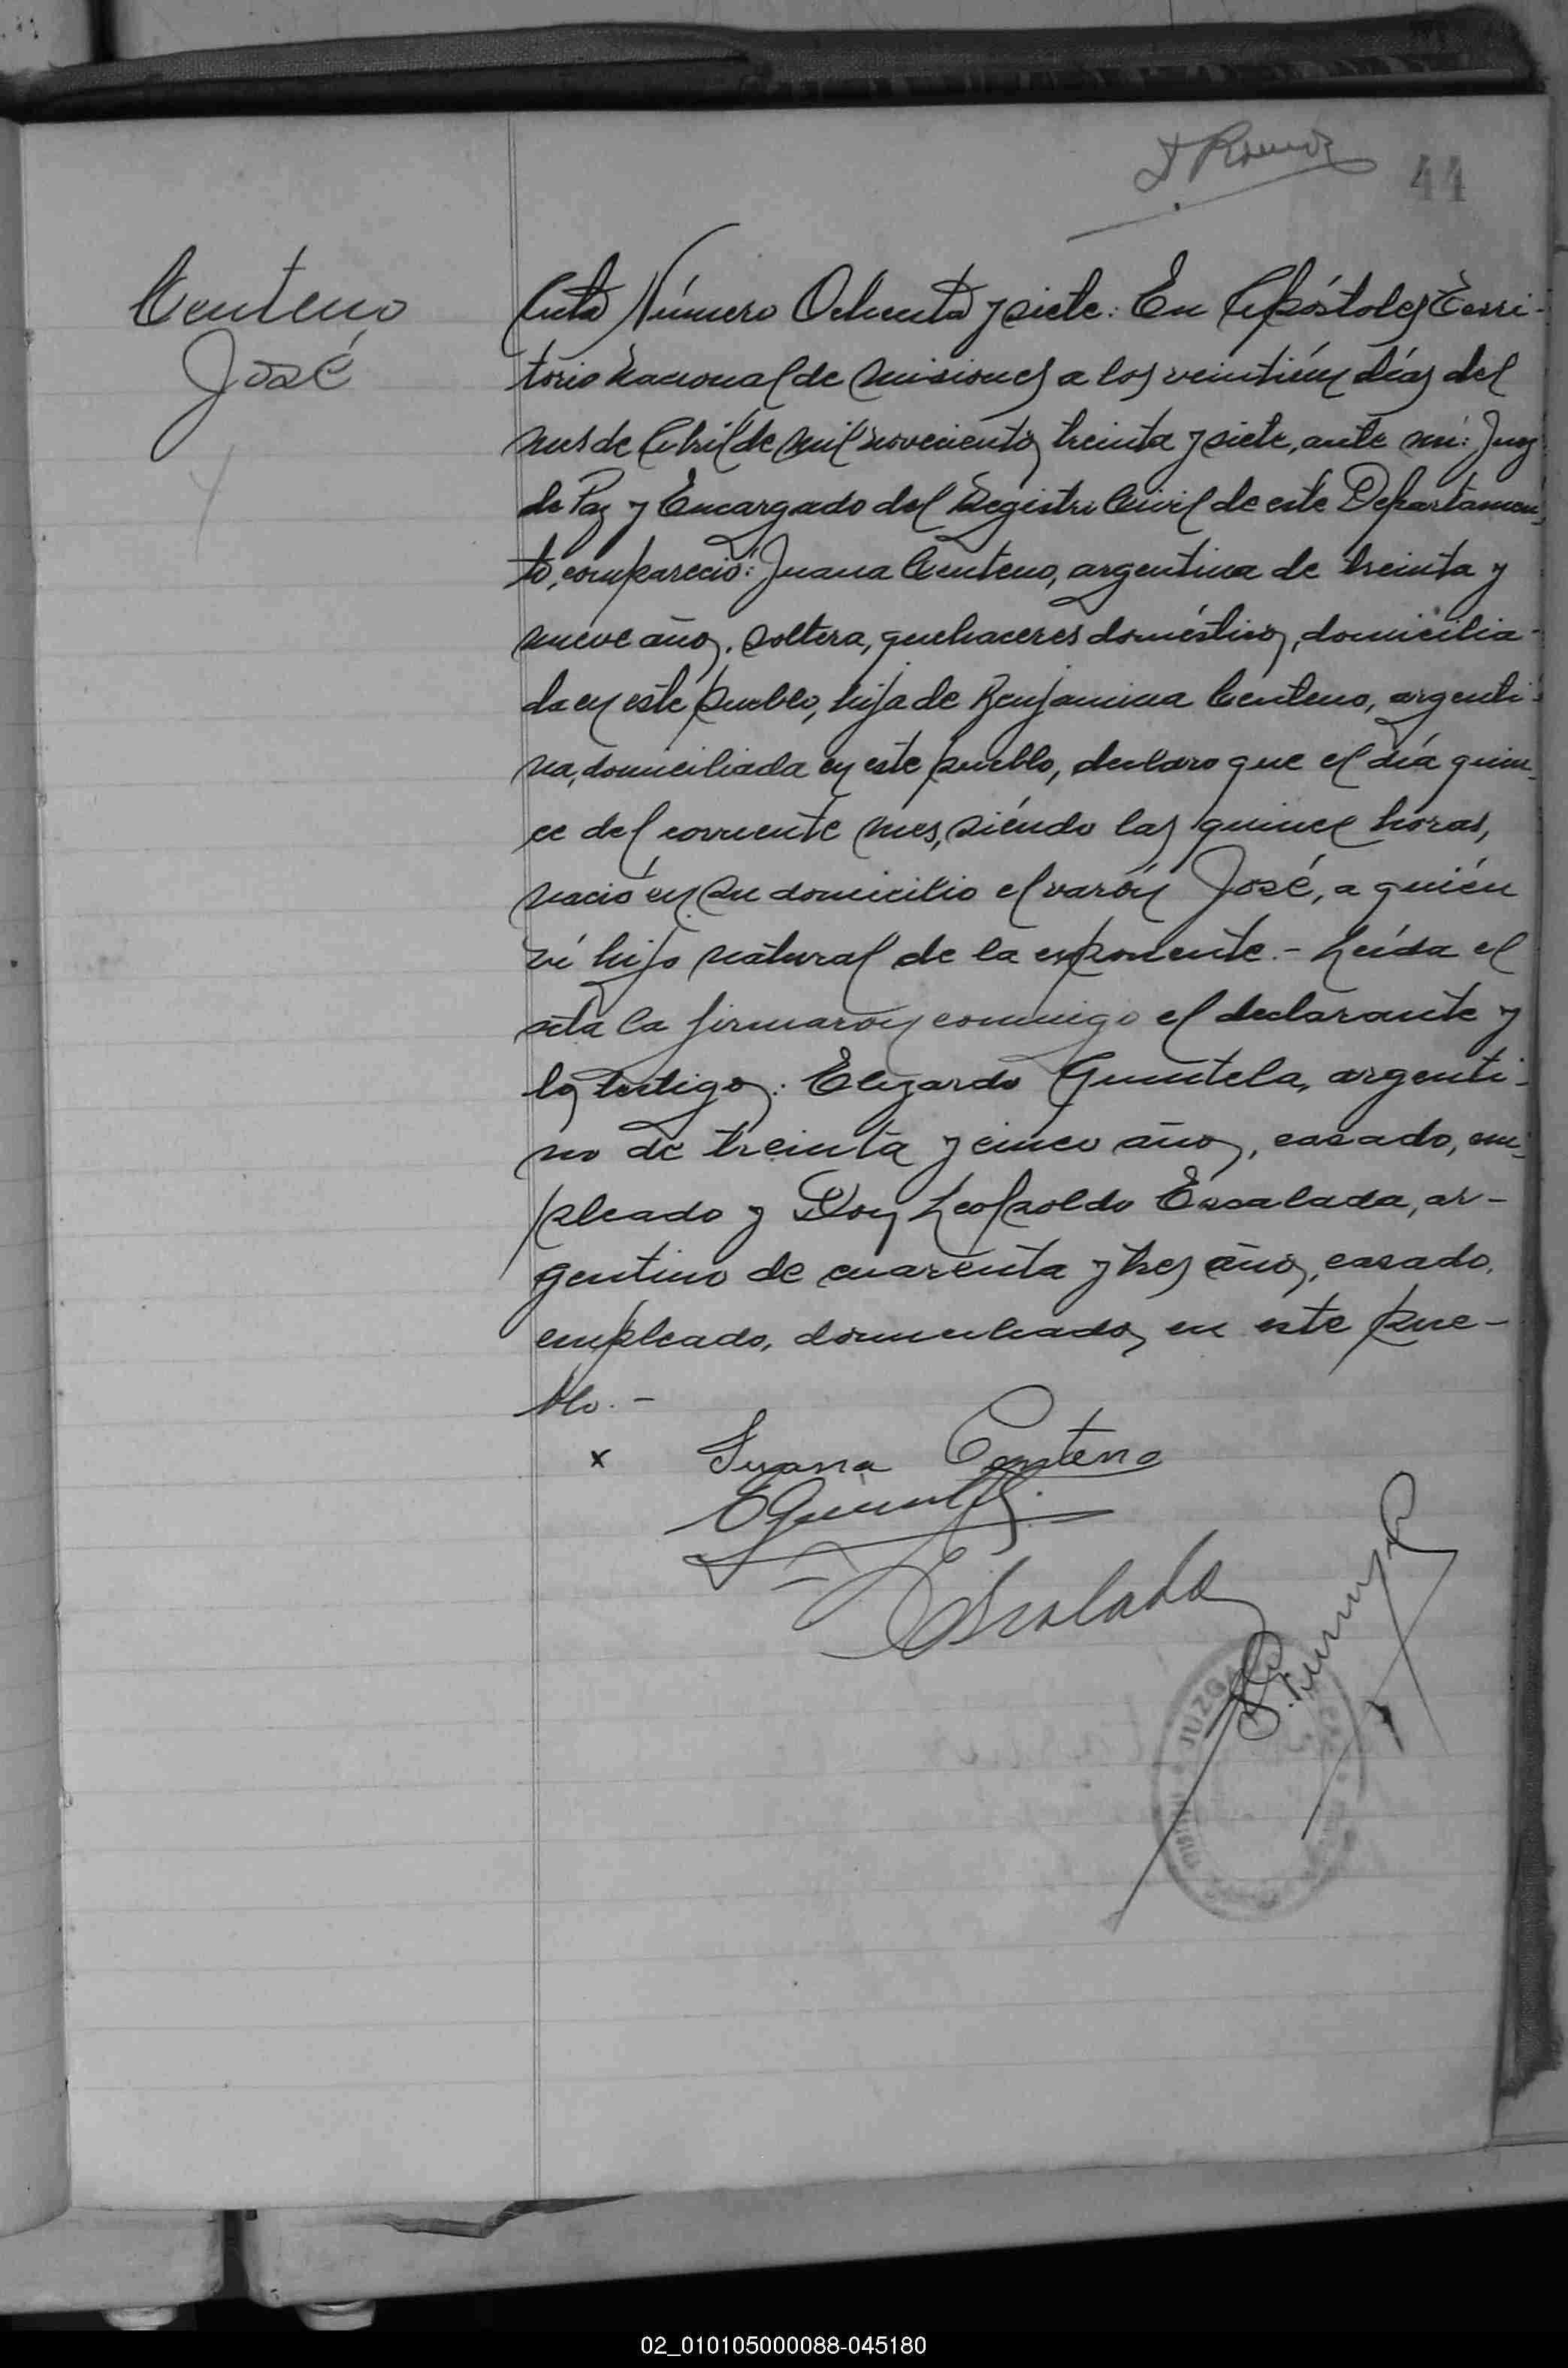 44
Centeno
José
Acta Número Ochenta y siete: En Apóstoles Terri-
torio Nacional de Misiones a los veintiún días del
mes de Abril de mil novecientos treinta y siete, ante mí: Juez
de Paz y Encargado del Registro Civil de este Departamen-
to, compareció: Juana Centeno, argentina de treinta y
nueve años, soltera, quehaceres domésticos, domicilia-
da en este pueblo, hija de Benjamina Centeno, argenti-
na, domiciliada en este pueblo, declaro que el día quin-
ce del corriente mes, siéndo las quince horas,
nació en su domicilio el varón José, a quién
ví hijo natural de la exponente.- Leída el
acta la firmaron conmigo el declarante y
los testigos: Elizardo Quintela, argenti-
no de treinta y cinco años, casado, em-
pleado y Don Leopoldo Escalada, ar-
gentino de cuarenta y tres años, casado,
empleado, domiciliados en este pue-
blo.-
x Juana Centeno
Escalada
JUZG
02_010105000088-045180